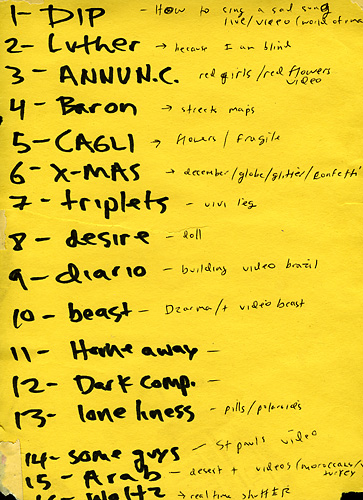 1- DIP - How to sing a sad song
live/video (world of
2- Luther → because I am blind
3- ANNUN.C. red girls/red flowers
video
4- Baron → streek maps
5- CAGLI → flowers/fragile
6- X-MAS → december/globe/glitter/confetti
7- triplets - vivi leg
8- desire - doll
9- diario - building video brazil
10- beast - Dzarma/+ video beast
11- Home away -
12- Dark comp. -
13- loneliness - pills/polaroids
14- some guys - St pauls video
15- Arab - desert + videos (morocco/
turkey)
16- Waltz → real time